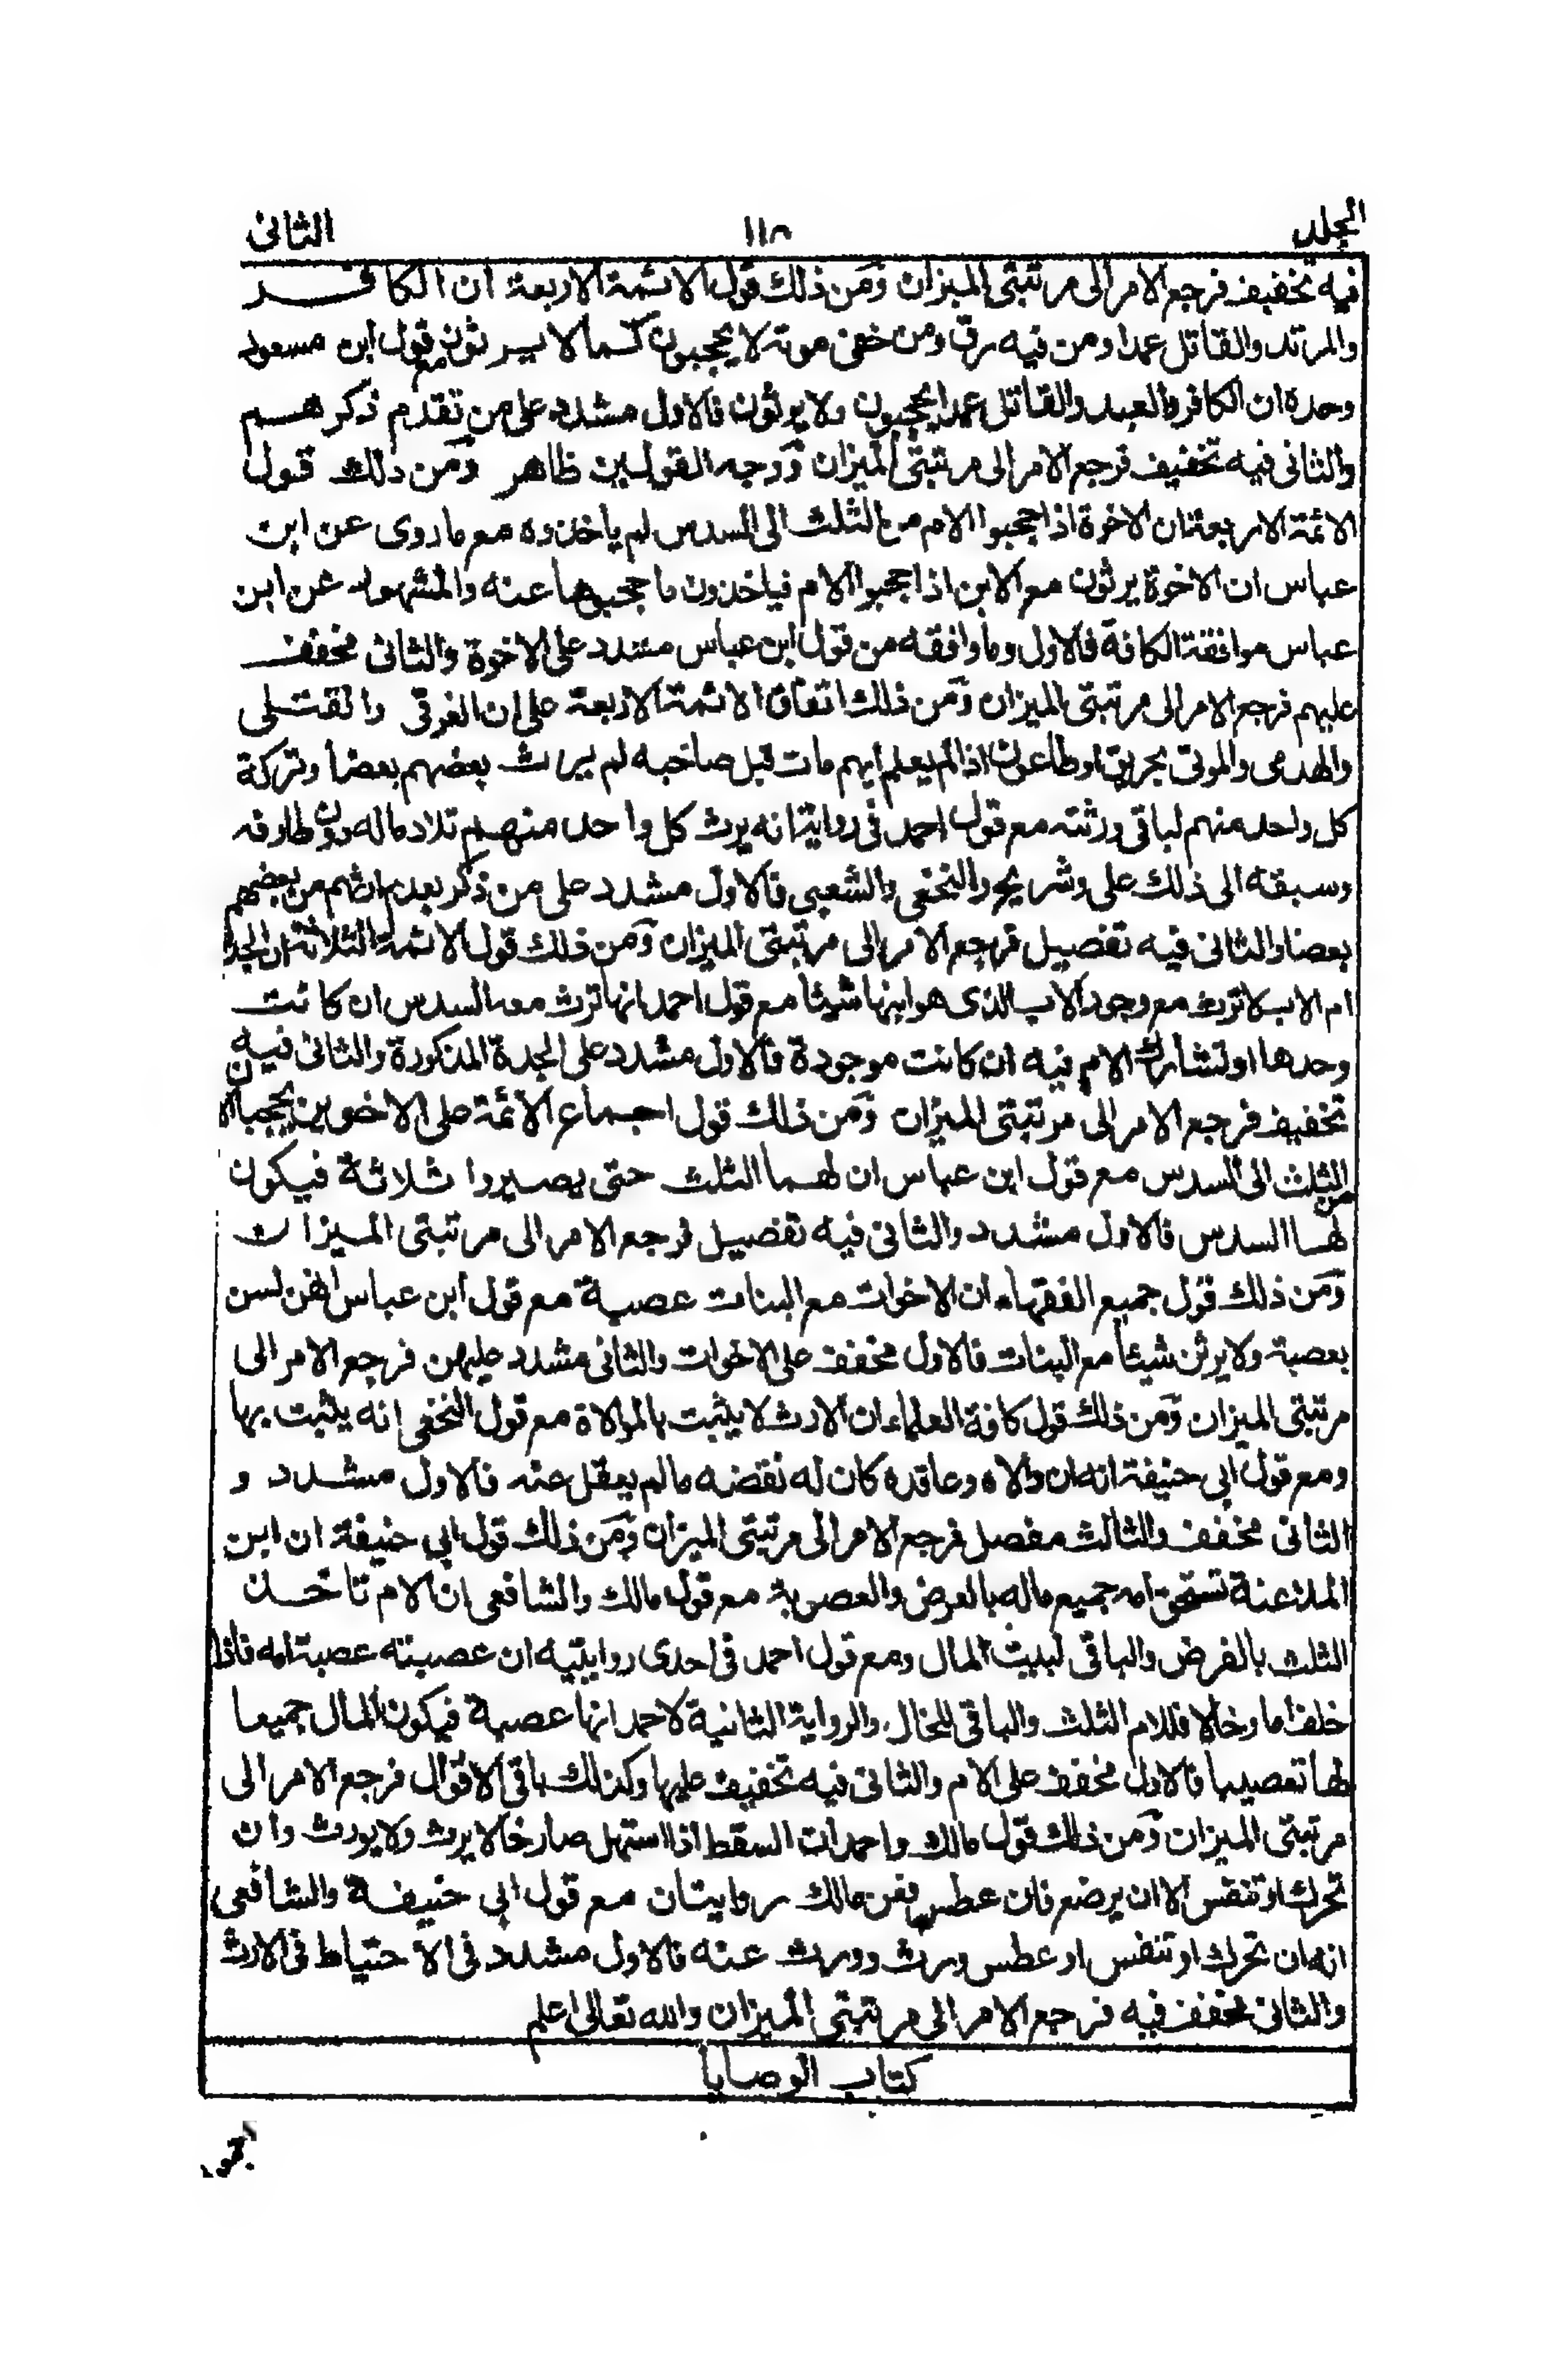 المجلد ١١٨ الثانى
فيه تخفيف فرجع الامر الى مرتبتى الميزان ومن ذلك قول الائمة الاربعة ان الكافر
والمرتد والقاتل عمدا ومن فيه رق ومن خفى موته لا يحجبون كما لا يرثون مع قول ابن مسعود
وحده ان الكافر والعبد والقاتل عمدا يحجبون ولا يرثون فالاول مشدد على من تقدم ذكرهم
والثانى فيه تخفيف فرجع الامر الى مرتبتى الميزان ووجه القولين ظاهر ومن ذلك قول
الائمة الاربعة ان الاخوة اذا حجبوا الام من الثلث الى السدس لم ياخذوه مع ما روى عن ابن
عباس ان الاخوة يرثون مع الابن اذا حجبوا الام فياخذون ما حجبوها عنه والمشهور عن ابن
عباس موافقة الكافة فالاول وما وافقه من قول ابن عباس مشدد على الاخوة والثانى مخفف
عليهم فرجع الامر الى مرتبتى الميزان ومن ذلك اتفاق الائمة الاربعة على ان الغرقى والقتلى
والهدمى والموتى بحريق او طاعون اذا لم يعلم ايهم مات قبل صاحبه لم يرث بعضهم بعضا وتركة
كل واحد منهم لباقى ورثته مع قول احمد فى رواية انه يرث كل واحد منهم تلاد ماله دون طارفه
وسبقه الى ذلك على وشريح والنخعى والشعبى فالاول مشدد على من ذكر بعدم ارثهم من بعضهم
بعضا والثانى فيه تفصيل فرجع الامر الى مرتبتى الميزان ومن ذلك قول الائمة الثلاثة ان الجدة
ام الاب لا ترث مع وجود الاب الذى هو ابنها شيئا مع قول احمد انها ترث معه السدس ان كانت
وحدها او تشارك الام فيه ان كانت موجودة فالاول مشدد على الجدة المذكورة والثانى فيه
تخفيف فرجع الامر الى مرتبتى الميزان ومن ذلك قول اجماع الائمة على ان الاخوين يحجبا الام
من الثلث الى السدس مع قول ابن عباس ان لهما الثلث حتى يصيروا ثلاثة فيكون
لها السدس فالاول مشدد والثانى فيه تفصيل فرجع الامر الى مرتبتى الميزان
ومن ذلك قول جميع الفقهاء ان الاخوات مع البنات عصبة مع قول ابن عباس انهن لسن
بعصبة ولا يرثن شيئا مع البنات فالاول مخفف على الاخوات والثانى مشدد عليهن فرجع الامر الى
مرتبتى الميزان ومن ذلك قول كافة العلماء ان الارث لا يثبت بالموالاة مع قول النخعى انه يثبت بها
ومع قول ابى حنيفة انه ان والاه وعاقده كان له نقضه ما لم يعقل عنه فالاول مشدد و
الثانى مخفف والثالث مفصل فرجع الامر الى مرتبتى الميزان ومن ذلك قول ابى حنيفة ان ابن
الملاعنة تستحق امه جميع ماله بالفرض والعصوبة مع قول مالك والشافعى ان الام تاخذ
الثلث بالفرض والباقى لبيت المال ومع قول احمد فى احدى روايتيه ان عصبته عصبة امه فاذا
خلف اما وخالا فللام الثلث والباقى للخال والرواية الثانية لاحمد انها عصبة فيكون المال جميعا
لها تعصيبا فالاول مخفف على الام والثانى فيه تخفيف عليها وكذلك باقى الاقوال فرجع الامر الى
مرتبتى الميزان ومن ذلك قول مالك واحمد ان السقط اذا استهل صارخا لا يرث ولا يورث وان
تحرك او تنفس الا ان يرضع فان عطس فعن مالك روايتان مع قول ابى حنيفة والشافعى
انه ان تحرك او تنفس او عطس ورث وورث عنه فالاول مشدد فى الاحتياط فى الارث
والثانى مخفف فيه فرجع الامر الى مرتبتى الميزان والله تعالى اعلم
كتاب الوصايا